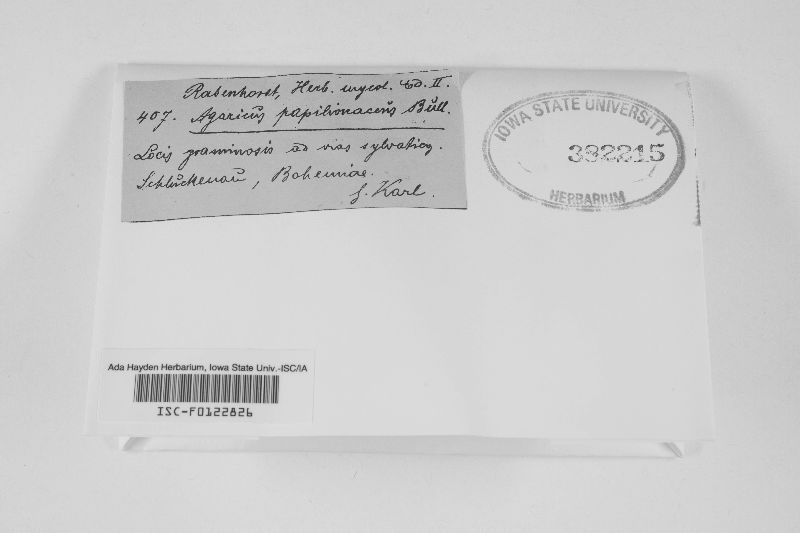 Rabenhorst, Herb. mycol. Ed. II.
407. Agaricus papilionaceus Bull.
Locis graminosis ad vias sylvaticq.
Schluckenau, Bohemiae.
J. Karl.
IOWA STATE UNIVERSITY
382215
HERBARIUM
Ada Hayden Herbarium, Iowa State Univ.-ISC/IA
ISC-F0122826